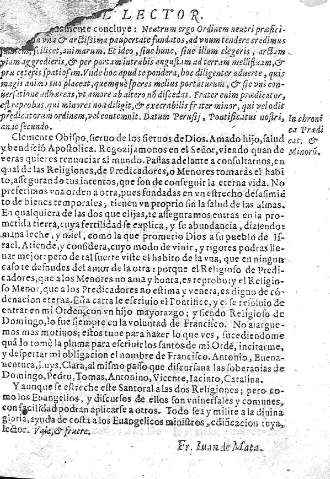 EL LECTOR.
mente concluye: Neutrum ergo Ordinem neutri præfici-
una & arctissima paupertate fundatos, ad vnum tendere credimus
scilicet, animarum. Et ideo, siue hunc, siue illum elegeris, arctam
viam aggredieris, & per portam intrabis angustam ad terram mellifluam, &
Vnde hoc apud te pondera, hoc diligenter aduerte, quis
magis animo tuo placeat,
uersatione adhæreas, vt amore ab altero nõ discedas. Frater enim prædicator,
est reprobus, qui minores nõ diligit, & execrabilis frater minor, qui vel odit
prædicatorum ordinem, vel contemnit. Datum Perusij, Pontificatus nostri,
anno secundo.
In chroni
ca Prædi
cat. &
Minorũ.
Clemente Obispo, sieruo de los sieruos de Dios. Amado hijo, salud
y bendició Apostolica. Regozijamonos en el Señor, viendo quan de
veras quieres renunciar al mundo. Passas adelante a consultarnos, en
qual de las Religiones, de Predicadores, o Menores tomarás el habi
to, assegurando tus intentos, que son de conseguir la eterna vida. No
preferimos vna orden a otra, pues fundadas en vn estrecho desasimié
to de bienes temporales, tienen vn proprio fin la salud de las almas.
En qualquiera de las dos que elijas, te asseguramos entras en la pro-
metida tierra, cuya fertilidad se explica, y su abundancia, diziendo
mana leche, y miel, como la que prometio Dios a su pueblo de Is-
rael. Atiende, y considera, cuyo modo de viuir, y rigores podras lle-
uar mejor: pero de tal suerte viste el habito de la vna, que en ningun
caso te desnudes del amor de la otra: porque el Religioso de Predi-
cadores, que a los Menores no ama y honra, es reprobo: y el Religio-
so Menor, que a los Predicadores no estima y venera, es digno de có-
denacion eterna. Esta carta le escriuio el Pontifice, y el se resoluio de
entrar en mi Orden, con vn hijo mayorazgo; y siendo Religioso de
Domingo, lo fue siempre con la voluntad de Francisco. No alargue-
mos mas motiuos; estos tune para hazer lo que ves, sucediendome
que lo tomè la pluma para escriuir los santos de mi Ordé, incitarme,
y despertar mi obligacion el nombre de Francisco. Antonio, Buena-
uentura, Luys, Clara, al mismo passo que discursaua las soberanias de
Domingo, Pedro, Tomas, Antonino, Vicente, Iacinto, Catalina.
Y aunque se estreche este Santoral a las dos Religiones; pero co-
mo los Euangelios, y discursos de ellos son vniuersales y comunes,
con facilidad podran aplicarse a otros. Todo sea y milite a la diuina
gloria, ayuda de costa a los Euangelicos ministros, edificacion tuya,
lector. Vale, & fruere.
Fr. Iuan de Mata.